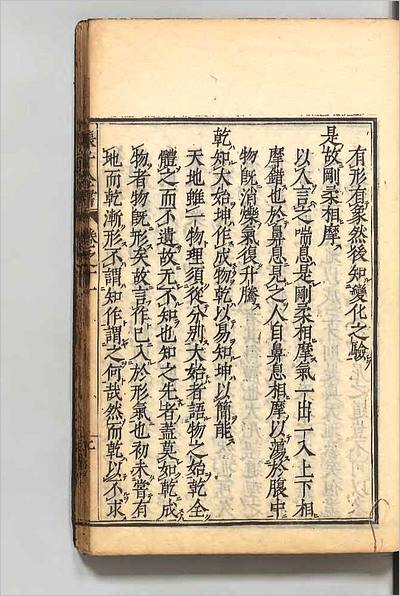 有形有象然後知變化之驗
是故剛柔相摩
以人言之喘息是剛柔相摩氣一出一入上下相
摩錯也於鼻息見之人自鼻息相摩以蕩於腹中
物既消爍氣復升騰
乾知大始坤作成物乾以易知坤以簡能
天地雖一物理須從分別大始者語物之始乾全
體之而不遺故无不知也知之先者蓋莫如乾成
物者物既形矣故言作已入於形氣也初未嘗有
地而乾漸形不謂知作謂之何哉然而乾以不求
張子全書 卷之十